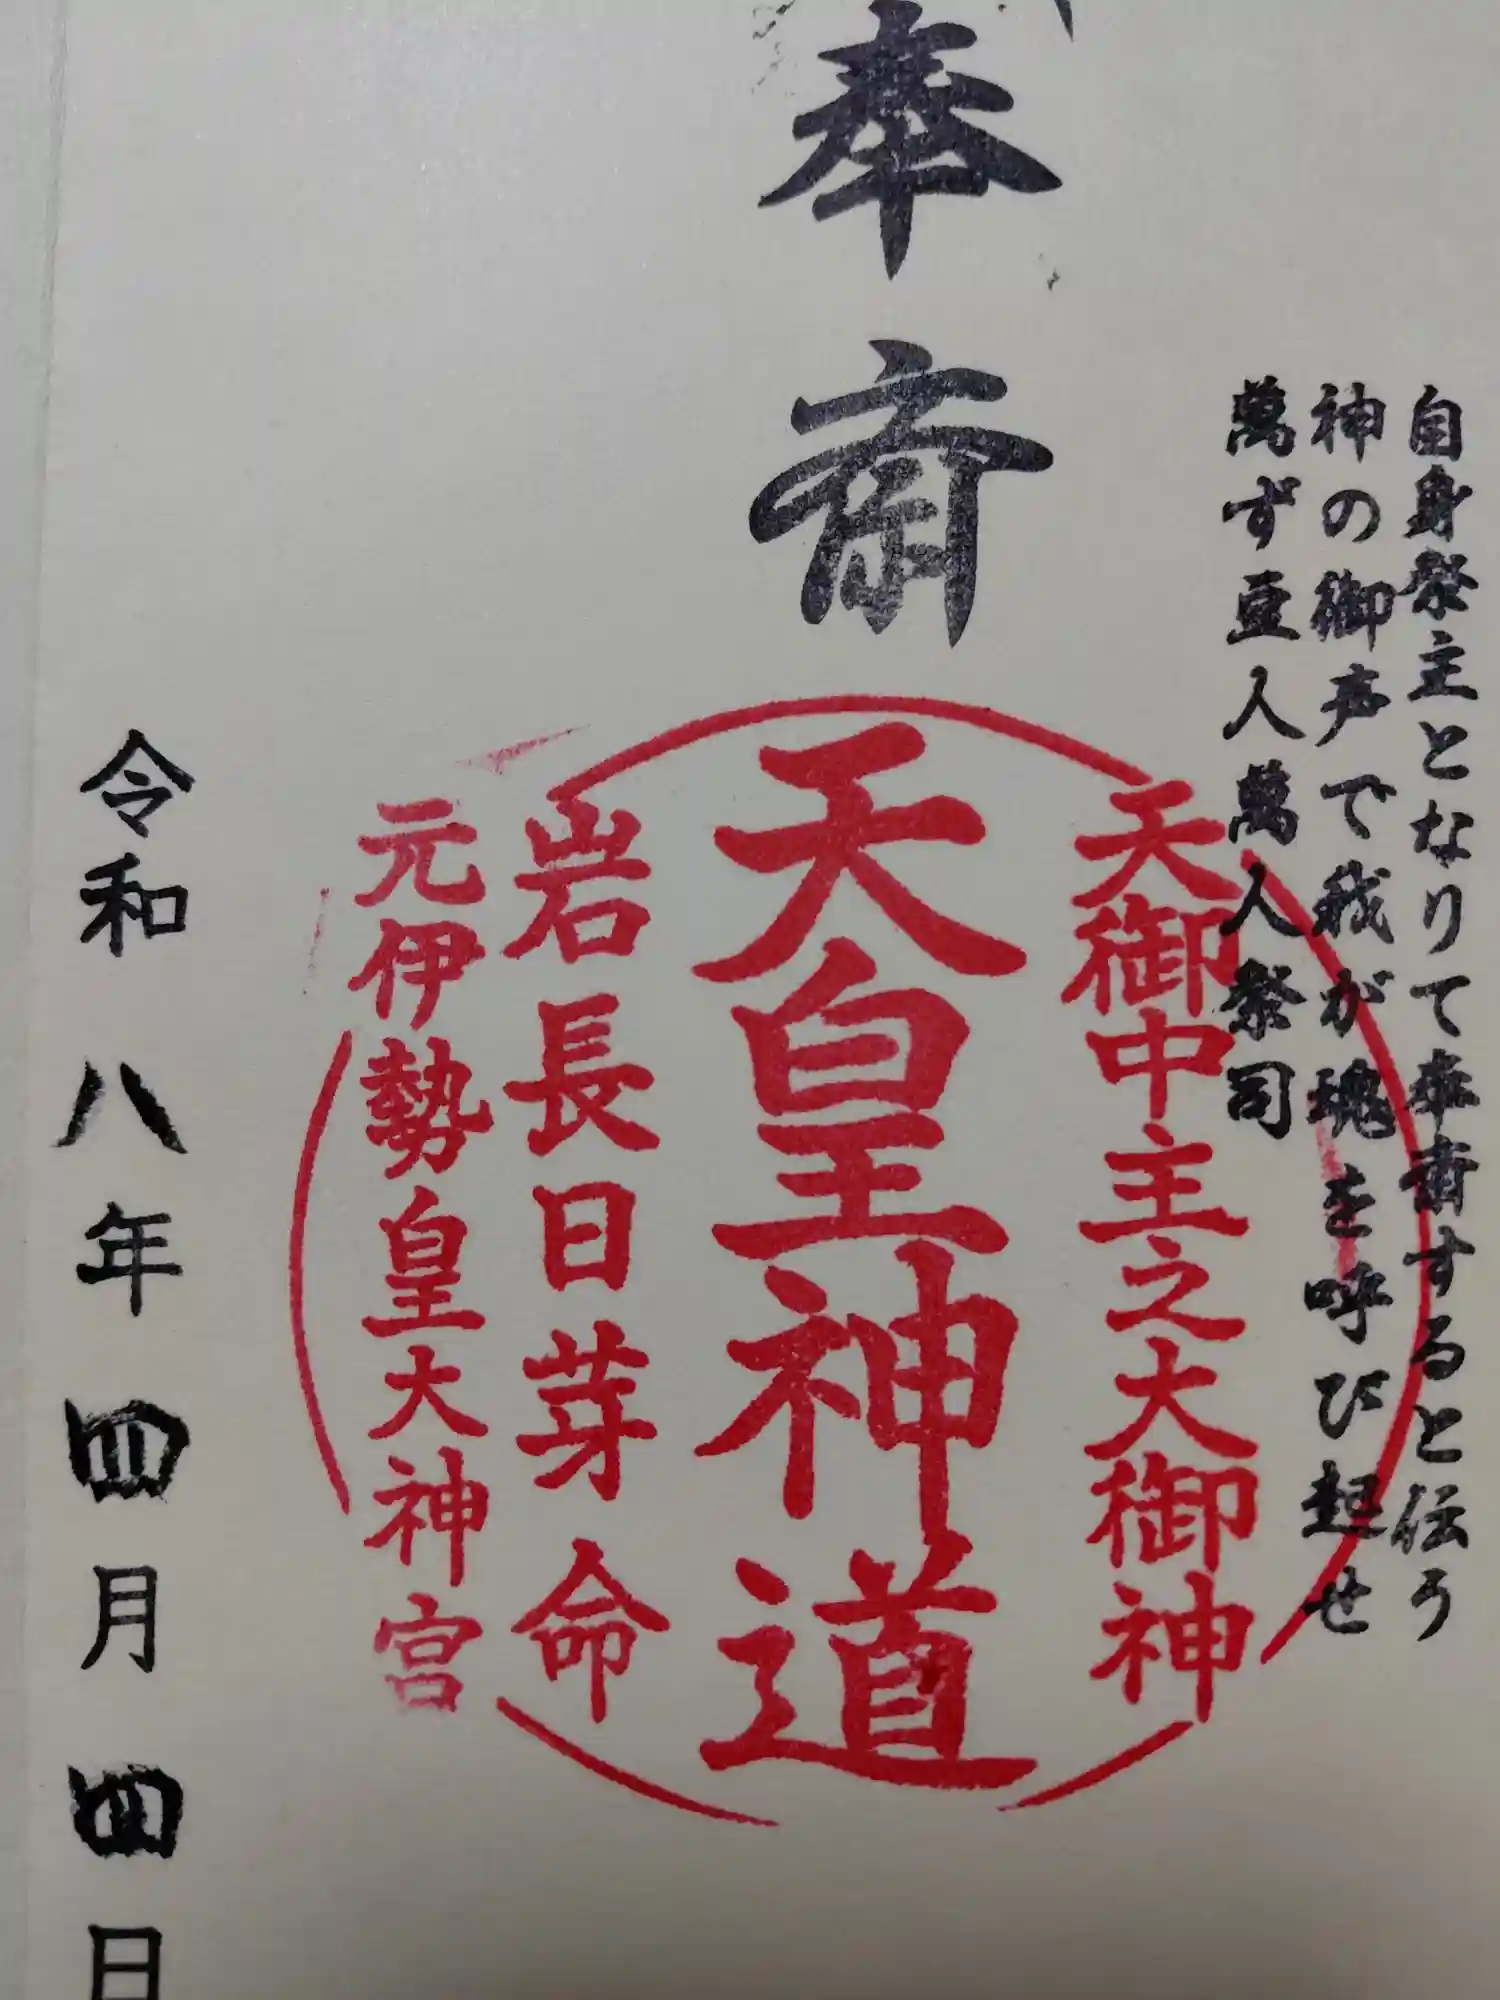 自身祭主となりて奉斎すると伝う
神の御声で我が魂を呼び起せ
萬ず亘人萬人祭司
奉斎
天御中主之大御神
天皇神道
岩長日芽命
元伊勢皇大神宮
令和八年四月四日